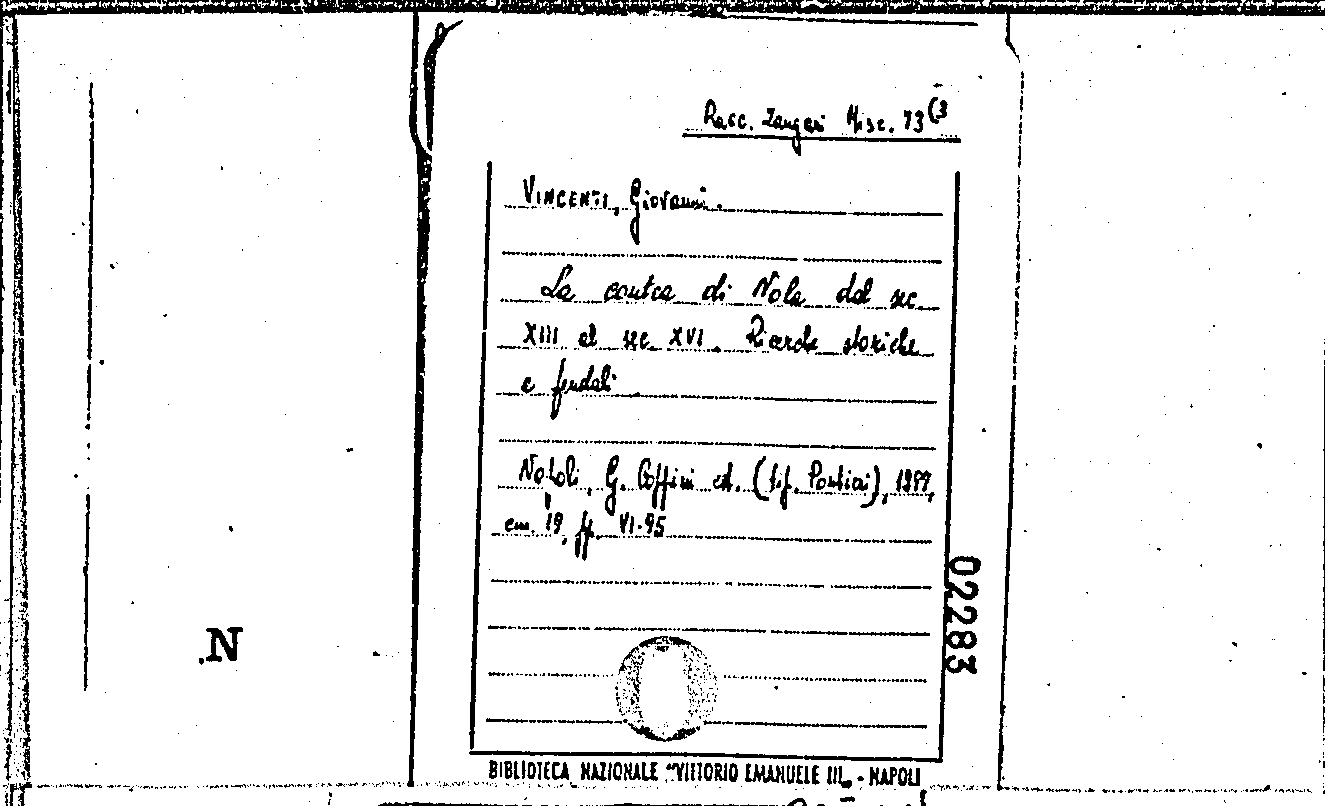 Racc. Zangari Misc. 73(3
VINCENTI, Giovanni.
La contea di Nola dal sec
XIII al sec XVI. Ricerche storiche
e feudali
Napoli, G. Coppini ed. (tip. Portici), 1897,
cm. 19, pp. VI-95
02283
.N
BIBLIOTECA NAZIONALE "VITTORIO EMANUELE III„ - NAPOLI